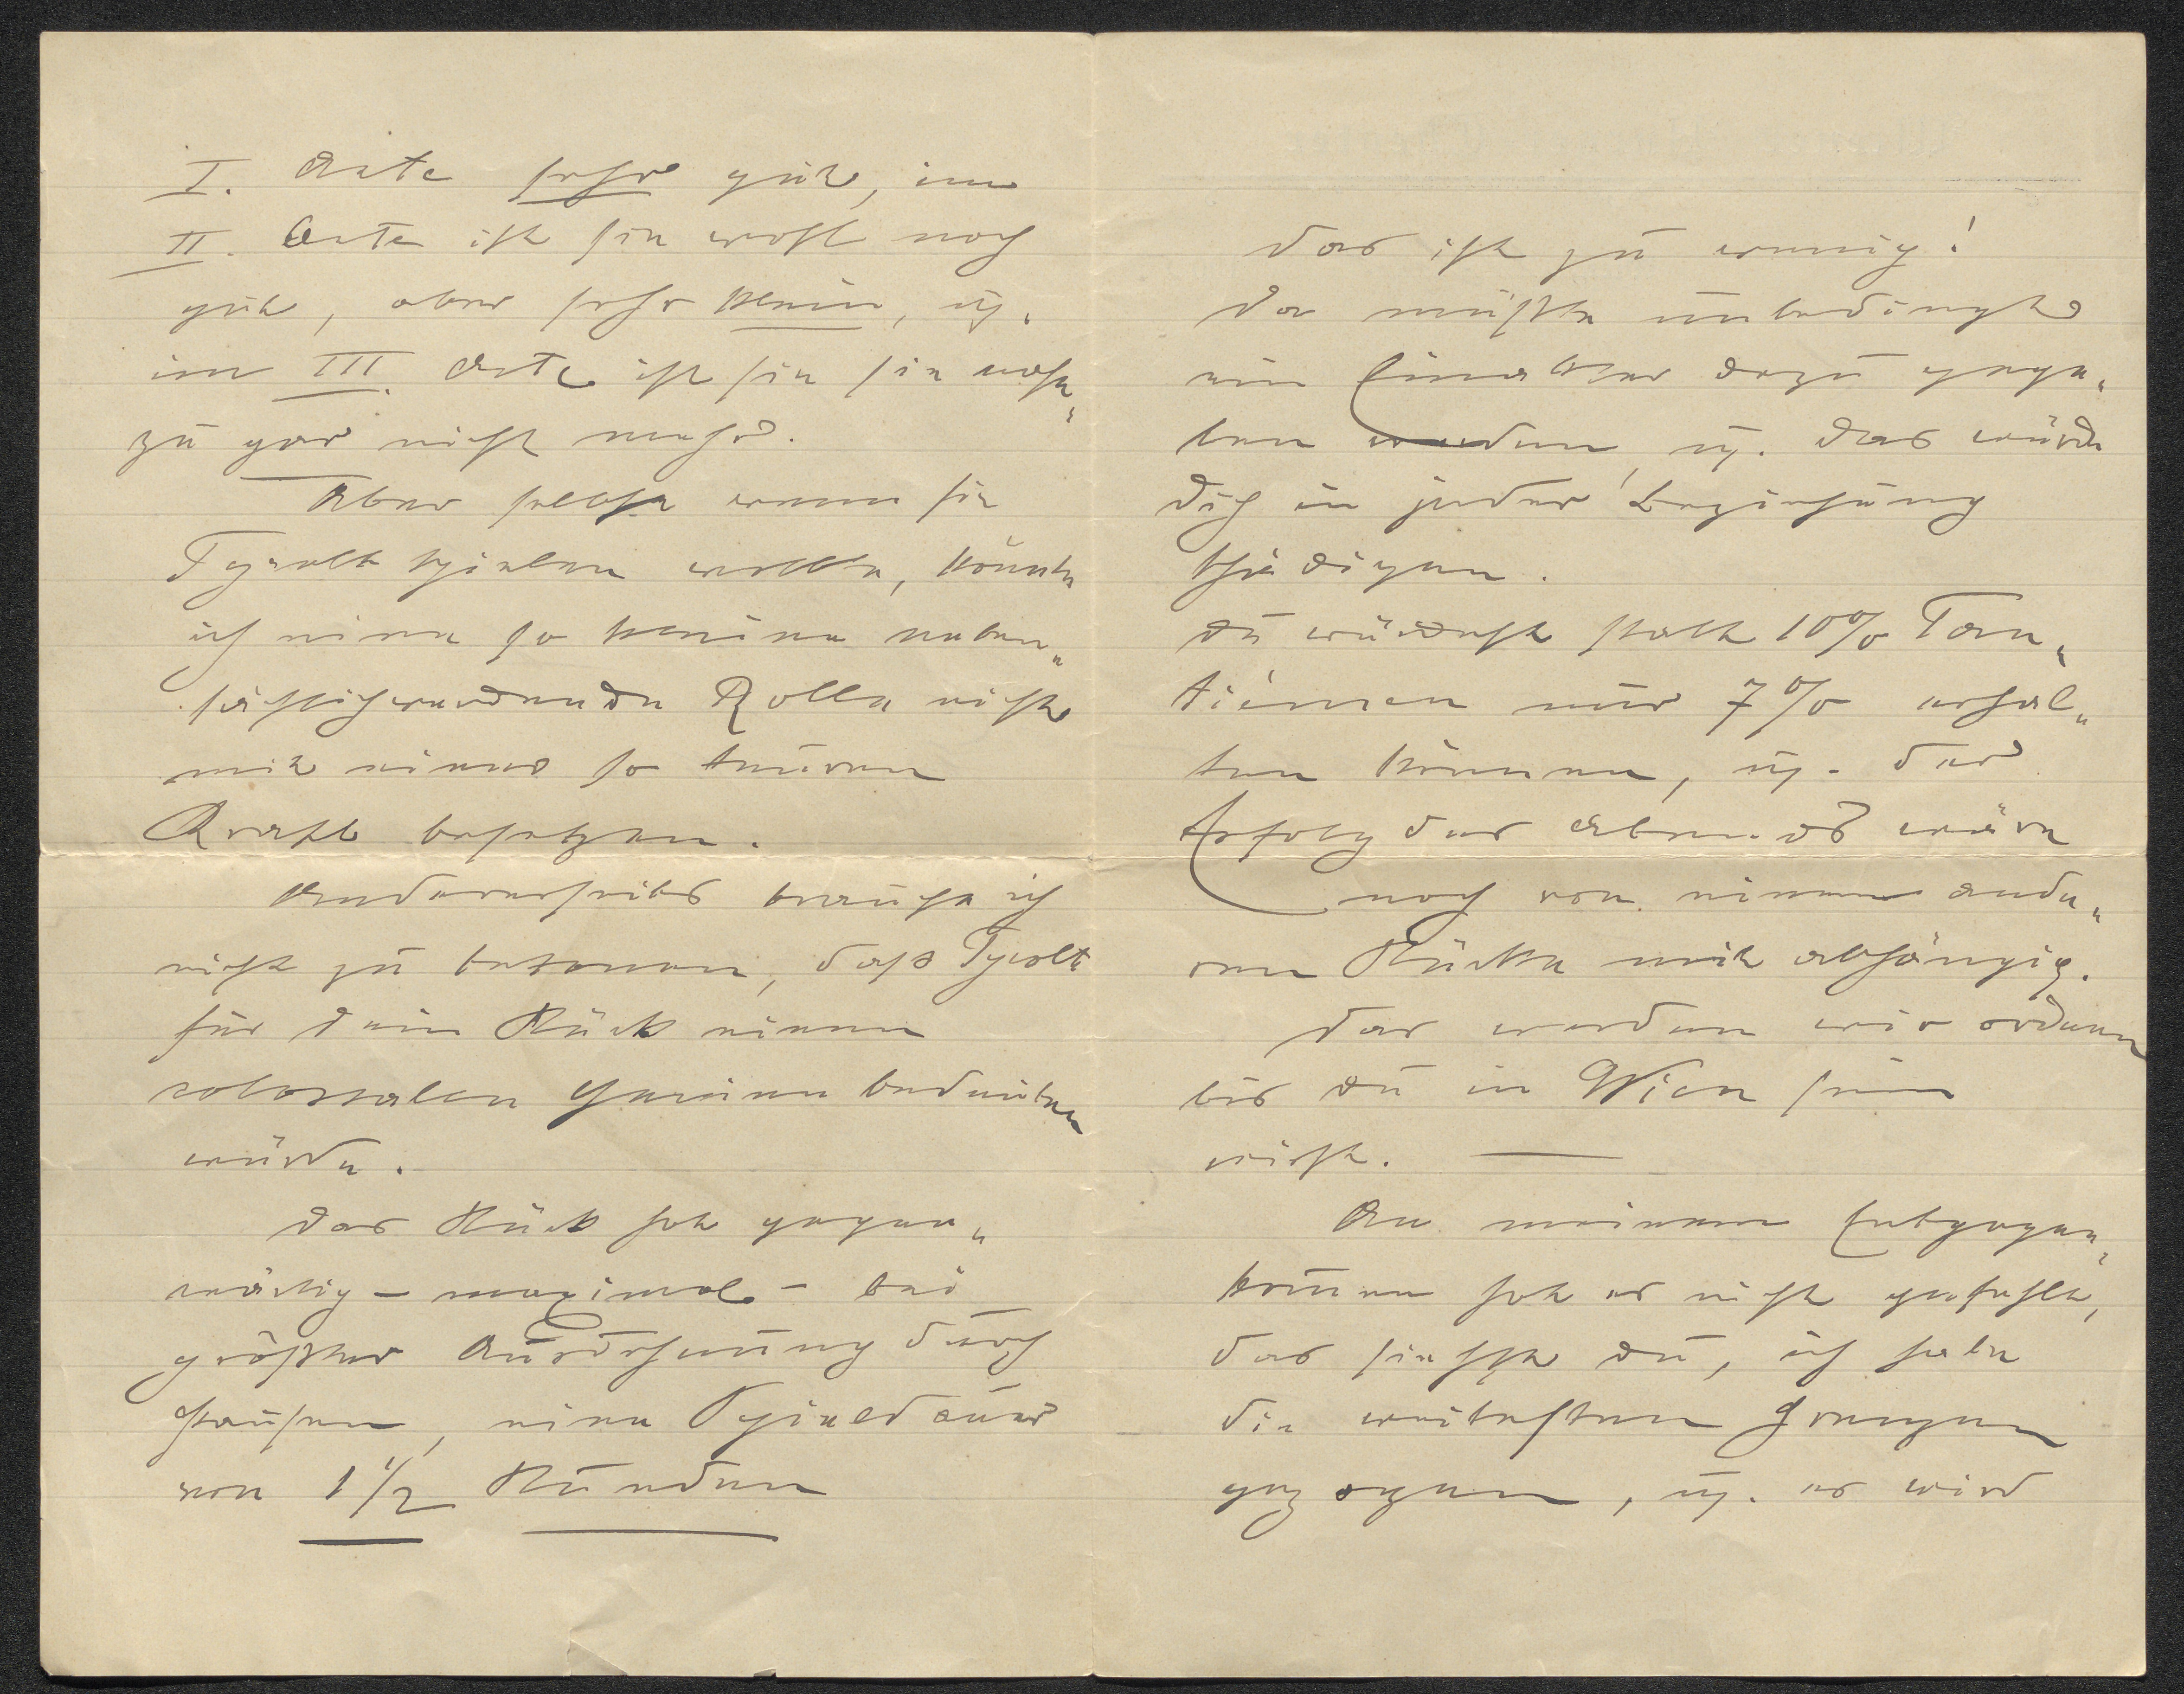 I. Acte sehr gut, im
II. Acte ist sie wohl noch
gut, aber sehr klein, u.
im III. Acte ist sie sie nahe„
zu gar nicht mehr.
Aber selbst wenn sie
Tyrolt spielen wollte, könnte
ich eine so kleine neben„
sächlichwerdende Rolle nicht
mit einer so teuren
Kraft besetzen.
Andererseits brauche ich
nicht zu betonen, daß Tyrolt
für dein Stück einen
colossalen Gewinn bedeuten
würde.
Das Stück hat gegen„
wärtig – maximal – bei
größter Ausdehnung durch
Pausen, eine Spieldauer
von 1 1/2 Stunden
Das ist zu wenig!
Da müßte unbedingt
ein Einakter dazu gege„
ben werden, u. das würde
dich in jeder Beziehung
schädigen.
Du würdest statt 10% Tan„
tièmen nur 7% erhal„
ten können, u. der
Erfolg des Abends wäre
noch von einem ande„
ren Stücke mit abhängig.
Das werden wir ordnen
bis du in Wien sein
wirst. —
An meinem Entgegen„
kommen hat es nicht gefehlt,
das siehst du, ich habe
die weitesten Grenzen
gezogen, u. es wird